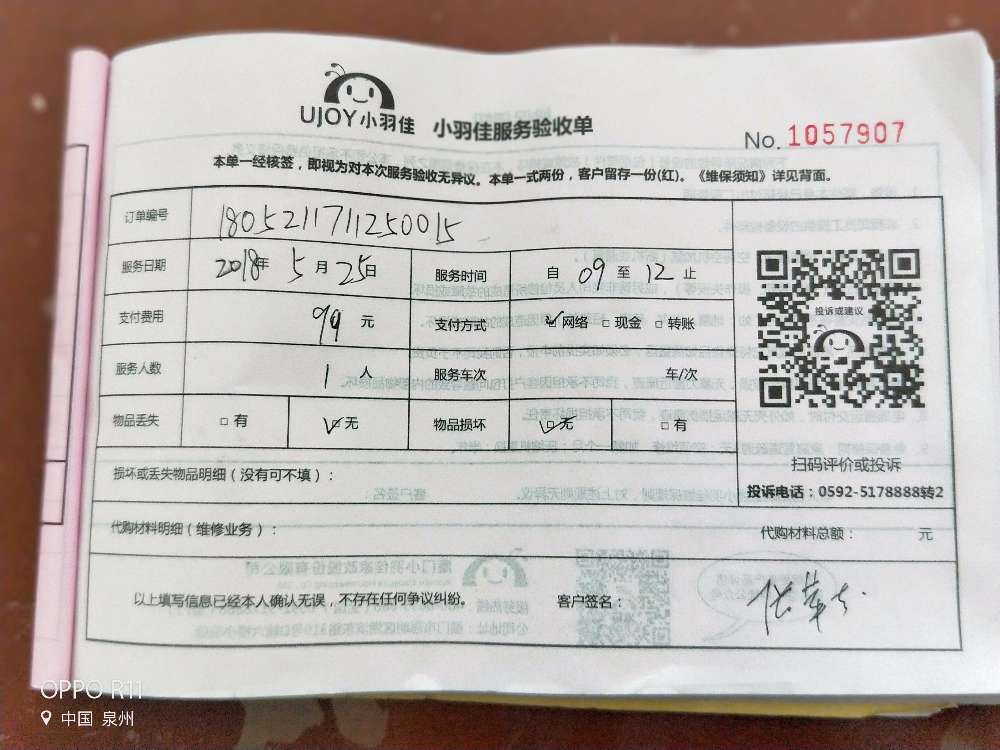 UJOY小羽佳 小羽佳服务验收单
No. 1057907
本单一经核签，即视为对本次服务验收无异议。本单一式两份，客户留存一份(红)。《维保须知》详见背面。
订单编号 1805211711250015
服务日期 2018年 5月 25日 服务时间 自 09 至 12 止
支付费用 99 元 支付方式 ☑网络 □现金 □转账
投诉或建议
服务人数 1 人 服务车次 车/次
物品丢失 □有 ☑无 物品损坏 ☑无 □有
扫码评价或投诉
损坏或丢失物品明细（没有可不填）：
投诉电话：0592-5178888转2
代购材料明细（维修业务）： 代购材料总额： 元
以上填写信息已经本人确认无误，不存在任何争议纠纷。 客户签名：
OPPO R11
中国 泉州